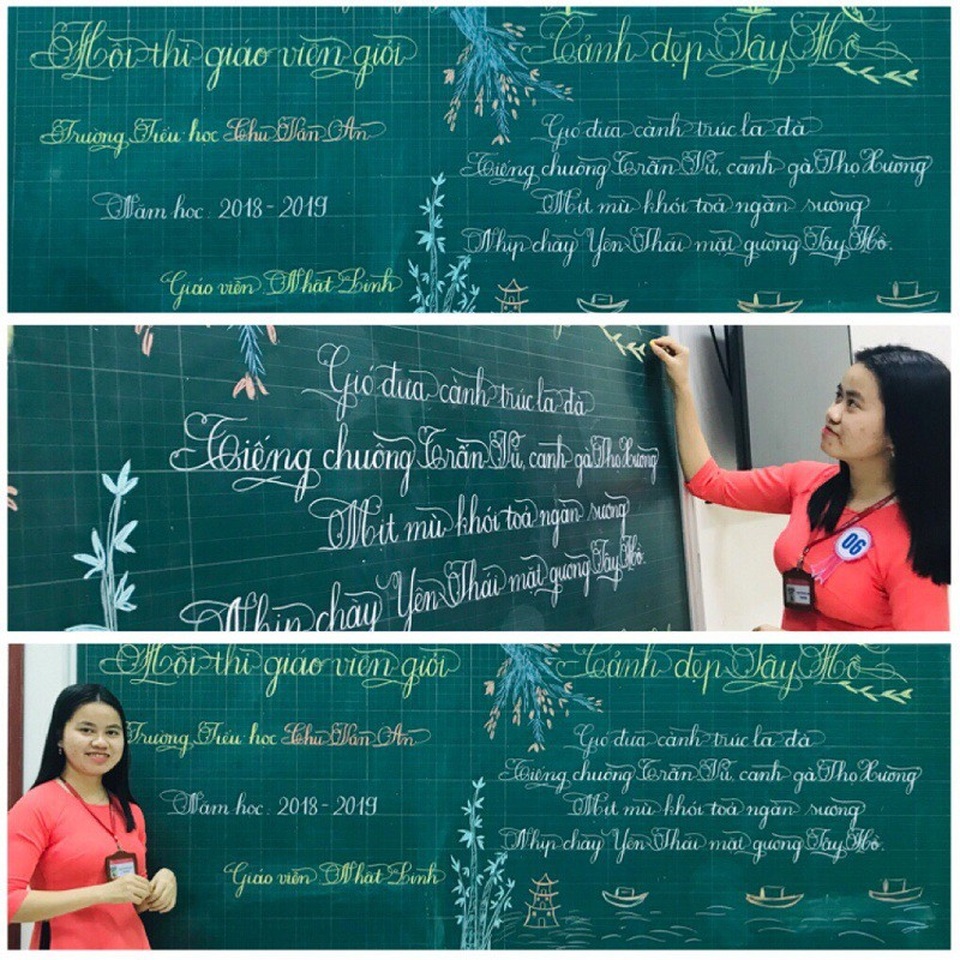 Hội thi giáo viên giỏi
Trường Tiểu học Chu Văn An
Năm học: 2018 - 2019
Giáo viên: Nhật Linh
Cảnh đẹp Tây Hồ
Gió đưa cành trúc la đà
Tiếng chuông Trấn Vũ, canh gà Thọ Xương
Mịt mù khói toả ngàn sương
Nhịp chày Yên Thái mặt gương Tây Hồ.
Gió đưa cành trúc la đà
Tiếng chuông Trấn Vũ, canh gà Thọ Xương
Mịt mù khói toả ngàn sương
Nhịp chày Yên Thái mặt gương Tây Hồ.
06
Hội thi giáo viên giỏi
Trường Tiểu học Chu Văn An
Năm học: 2018 - 2019
Giáo viên: Nhật Linh
Cảnh đẹp Tây Hồ
Gió đưa cành trúc la đà
Tiếng chuông Trấn Vũ, canh gà Thọ Xương
Mịt mù khói toả ngàn sương
Nhịp chày Yên Thái mặt gương Tây Hồ.